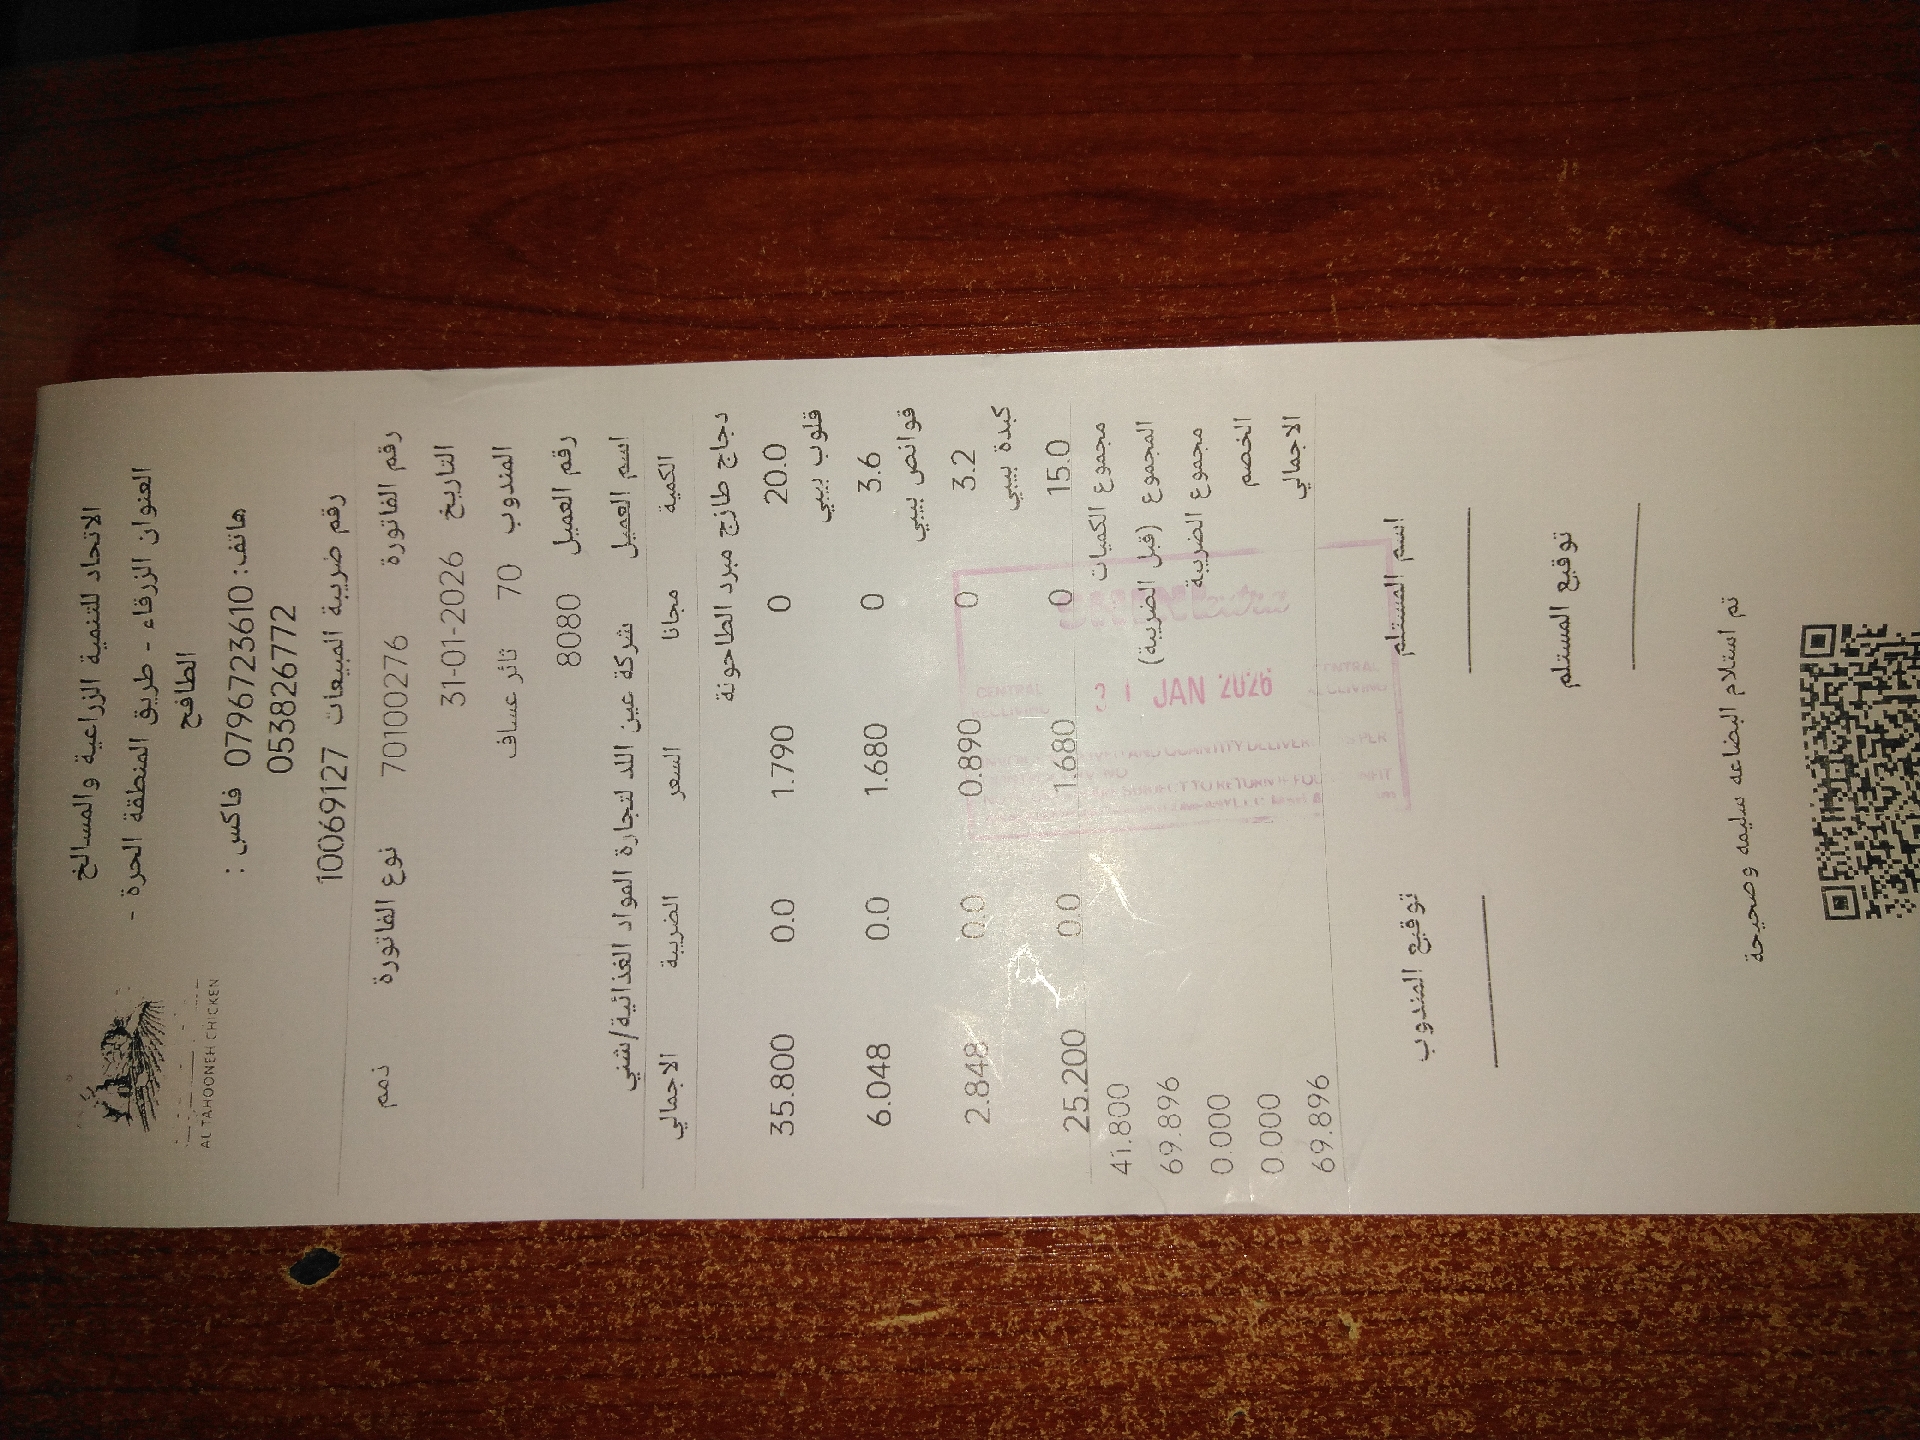 الاتحاد للتنمية الزراعية والمسالخ
العنوان الزرقاء - طريق المنطقة الحرة -
الطافح
هاتف: 0796723610 فاكس :
053826772
رقم ضريبة المبيعات 10069127
AL TAHOONEH CHICKEN
رقم الفاتورة 70100276 نوع الفاتورة ذمم
التاريخ 31-01-2026
المندوب 70 ثائر عساف
رقم العميل 8080
اسم العميل شركة عين اللد لتجارة المواد الغذائية/شني
الكمية مجانا السعر الضريبة الاجمالي
دجاج طازج مبرد الطاحونة
20.0 0 1.790 0.0 35.800
قلوب بيبي
3.6 0 1.680 0.0 6.048
قوانص بيبي
3.2 0 0.890 0.0 2.848
كبدة بيبي
15.0 0 1.680 0.0 25.200
مجموع الكميات 41.800
المجموع (قبل الضريبة) 69.896
مجموع الضريبة 0.000
الخصم 0.000
الاجمالي 69.896
CENTRAL RECEIVING
31 JAN 2026
CENTRAL RECEIVING
AND QUANTITY DELIVER
PER
SUBJECT TO RETURN IF
اسم المستلم توقيع المندوب
توقيع المستلم
تم استلام البضاعه سليمه وصحيحة